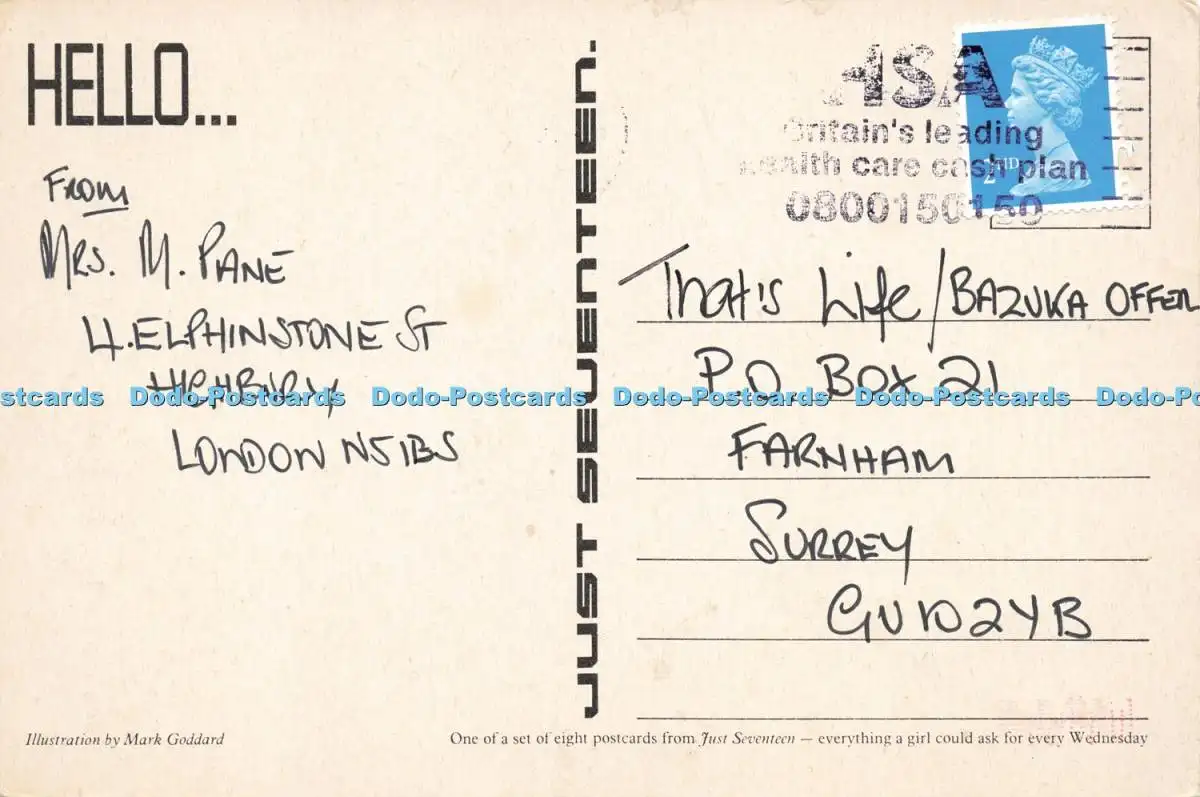 HELLO...
From
Mrs. M. PANE
4. ELPHINSTONE ST
HIGHBURY
LONDON N5 1BS
JUST SEVENTEEN.
HSA
Britain's leading
health care cash plan
0800150150
2ND
That's Life/BAZUKA OFFER
P.O. BOX 21
FARNHAM
SURREY
GU10 2YB
stcards Dodo-Postcards Dodo-Postcards Dodo-Postcards Dodo-Postcards Dodo-Postca
Illustration by Mark Goddard
One of a set of eight postcards from Just Seventeen — everything a girl could ask for every Wednesday